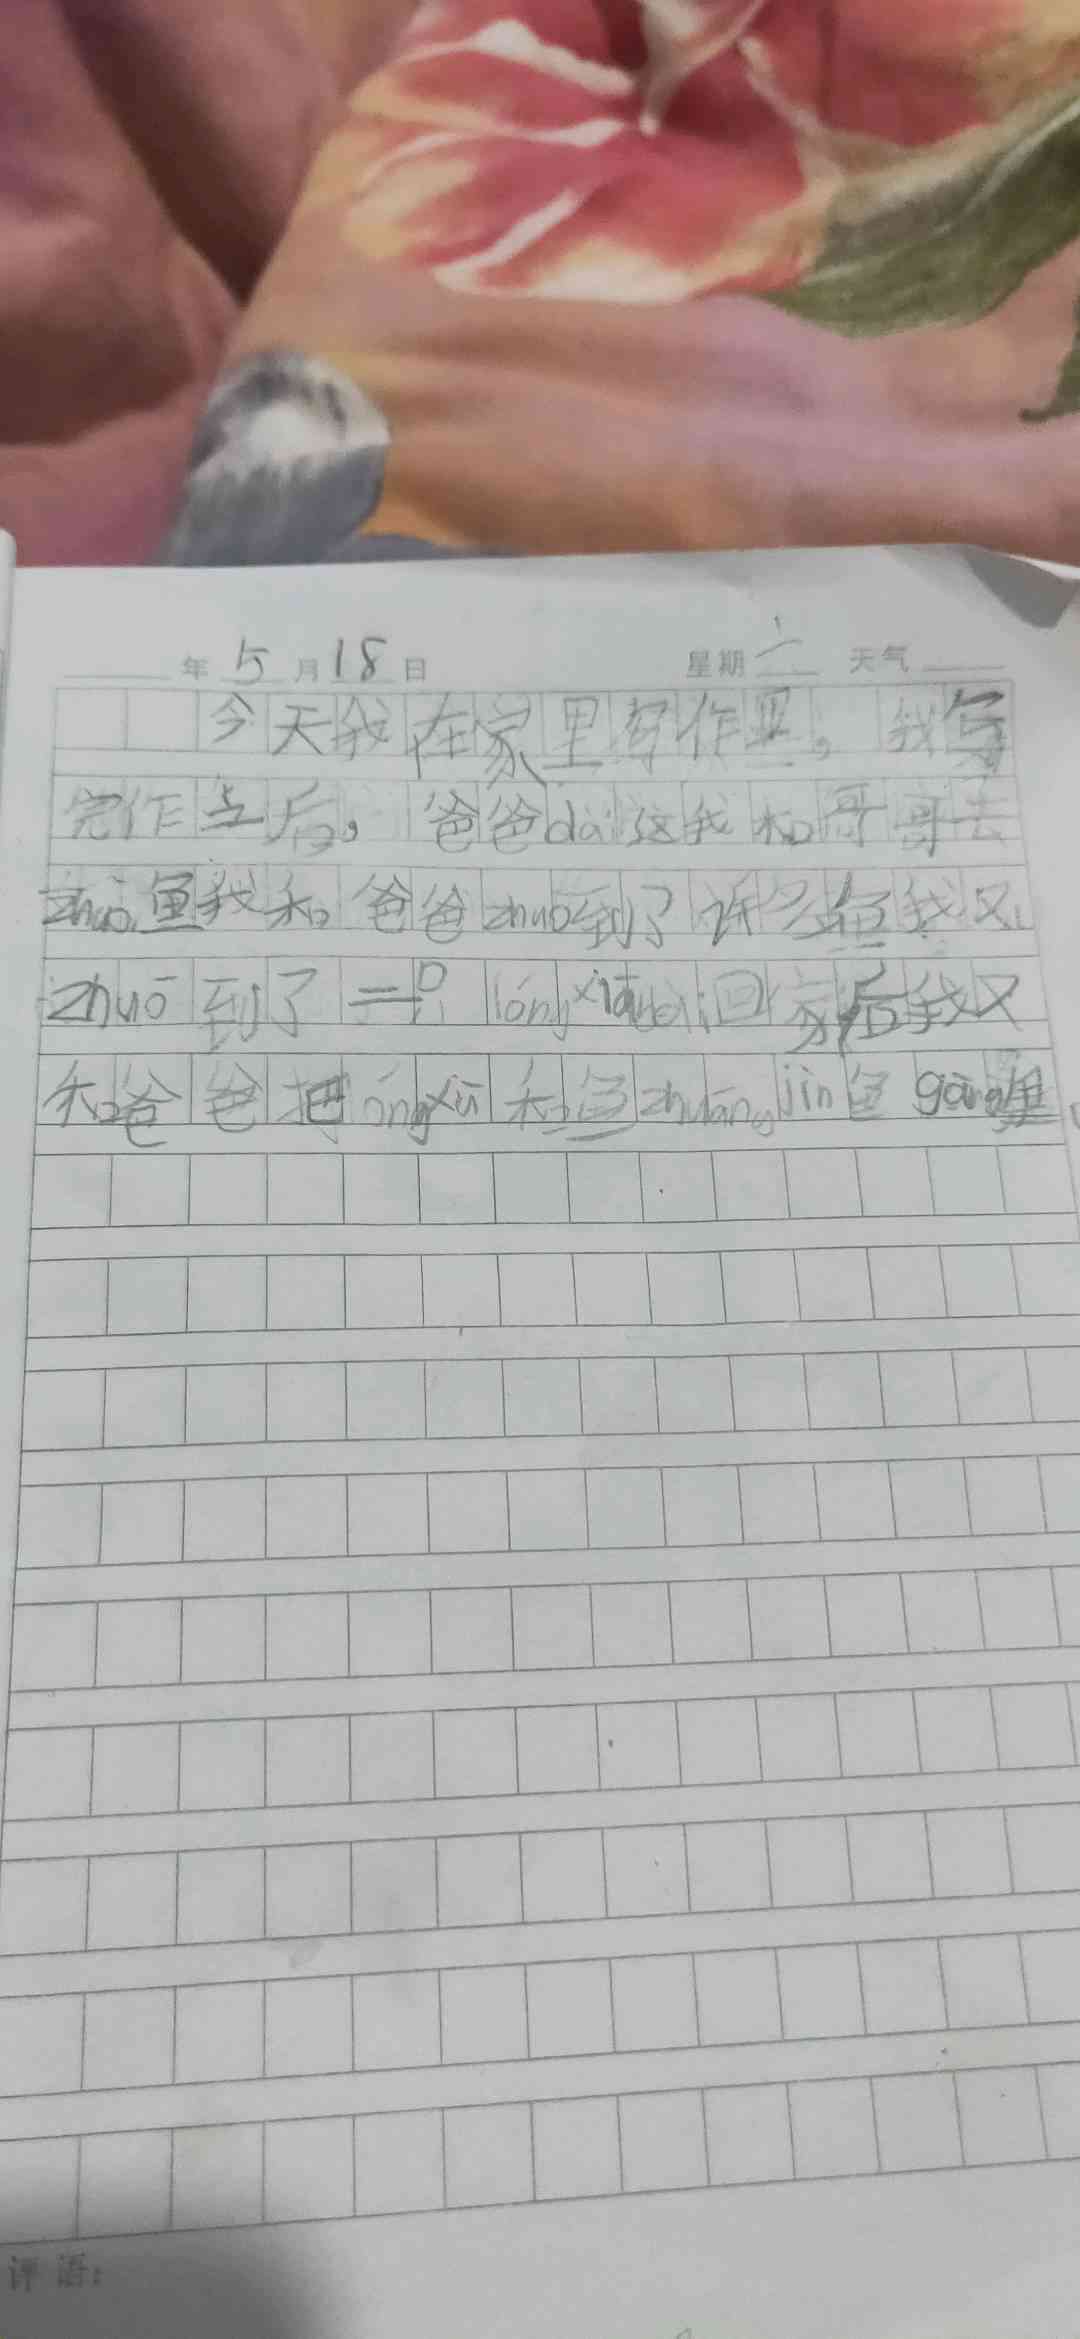 年 5 月 18 日 星期六 天气
今天我在家里写作业，我写
完作业后，爸爸dai这我和哥哥去
zhuō鱼我和爸爸zhuō到了许多鱼我又
zhuō到了一只lóngxiā回家后我又
和爸爸把óngxiā和鱼zhuāngjìn鱼gāng里
评语：